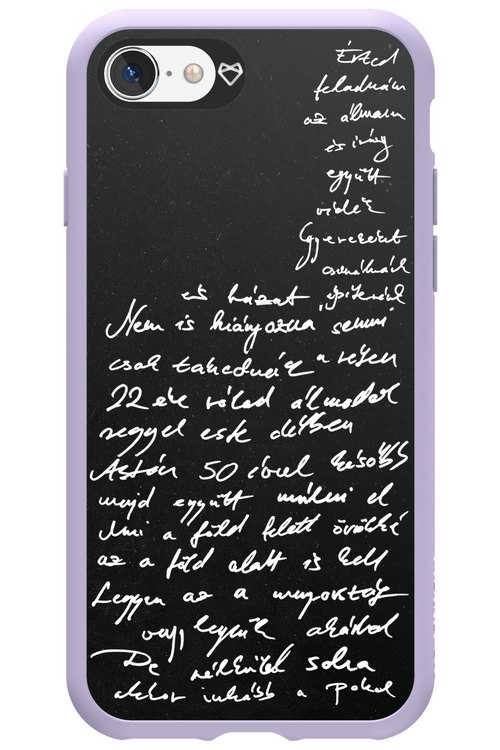 Érted
feladnám
az álmaim
és így
együtt
vidék
Gyerekeint
csinálnánk
és házat építenénk
Nem is hiányozna semmi
csak takednék a réten
22 éve rólad álmodok
reggel este délben
Aztán 50 évvel később
majd együtt múlni el
Ami a föld felett örökké
az a föld alatt is kell
Legyen az a mennyország
vagy legyünk akárhol
De nélküled soha
akkor inkább a pokol